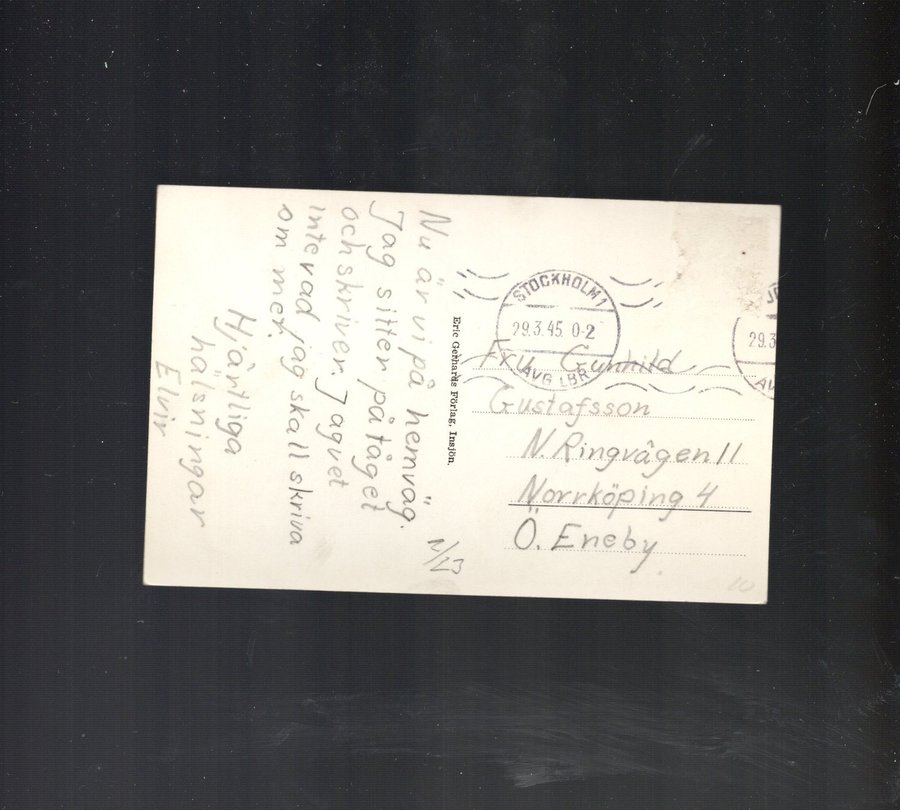 Nu är vi på hemväg.
Jag sitter på tåget
och skriver. Jag vet
inte vad jag skall skriva
om mer.
Hjärtliga
hälsningar
Elvir
Eric Gerhards Förlag, Insjön.
STOCKHOLM 1
29.3.45. 0-2
AVG LBR
29.3
Fru Gunhild
Gustafsson
N. Ringvägen 11
Norrköping 4
Ö. Eneby